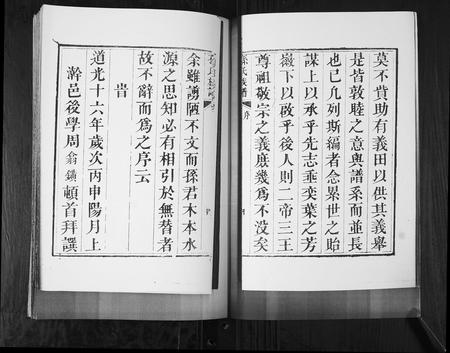 莫不貲助有義田以供其義舉
是皆敦睦之意與譜系而並長
也已凡列斯編者念累世之貽
謀上以承乎先志垂奕葉之芳
徽下以啟乎後人則二帝三王
尊祖敬宗之義庶幾爲不没矣
孫氏族譜 序
余雖謭陋不文而孫君木本水
源之思知必有相引於無替者
故不辭而爲之序云
時
道光十六年歲次丙申陽月上
澣邑後學周翁鐄頓首拜譔